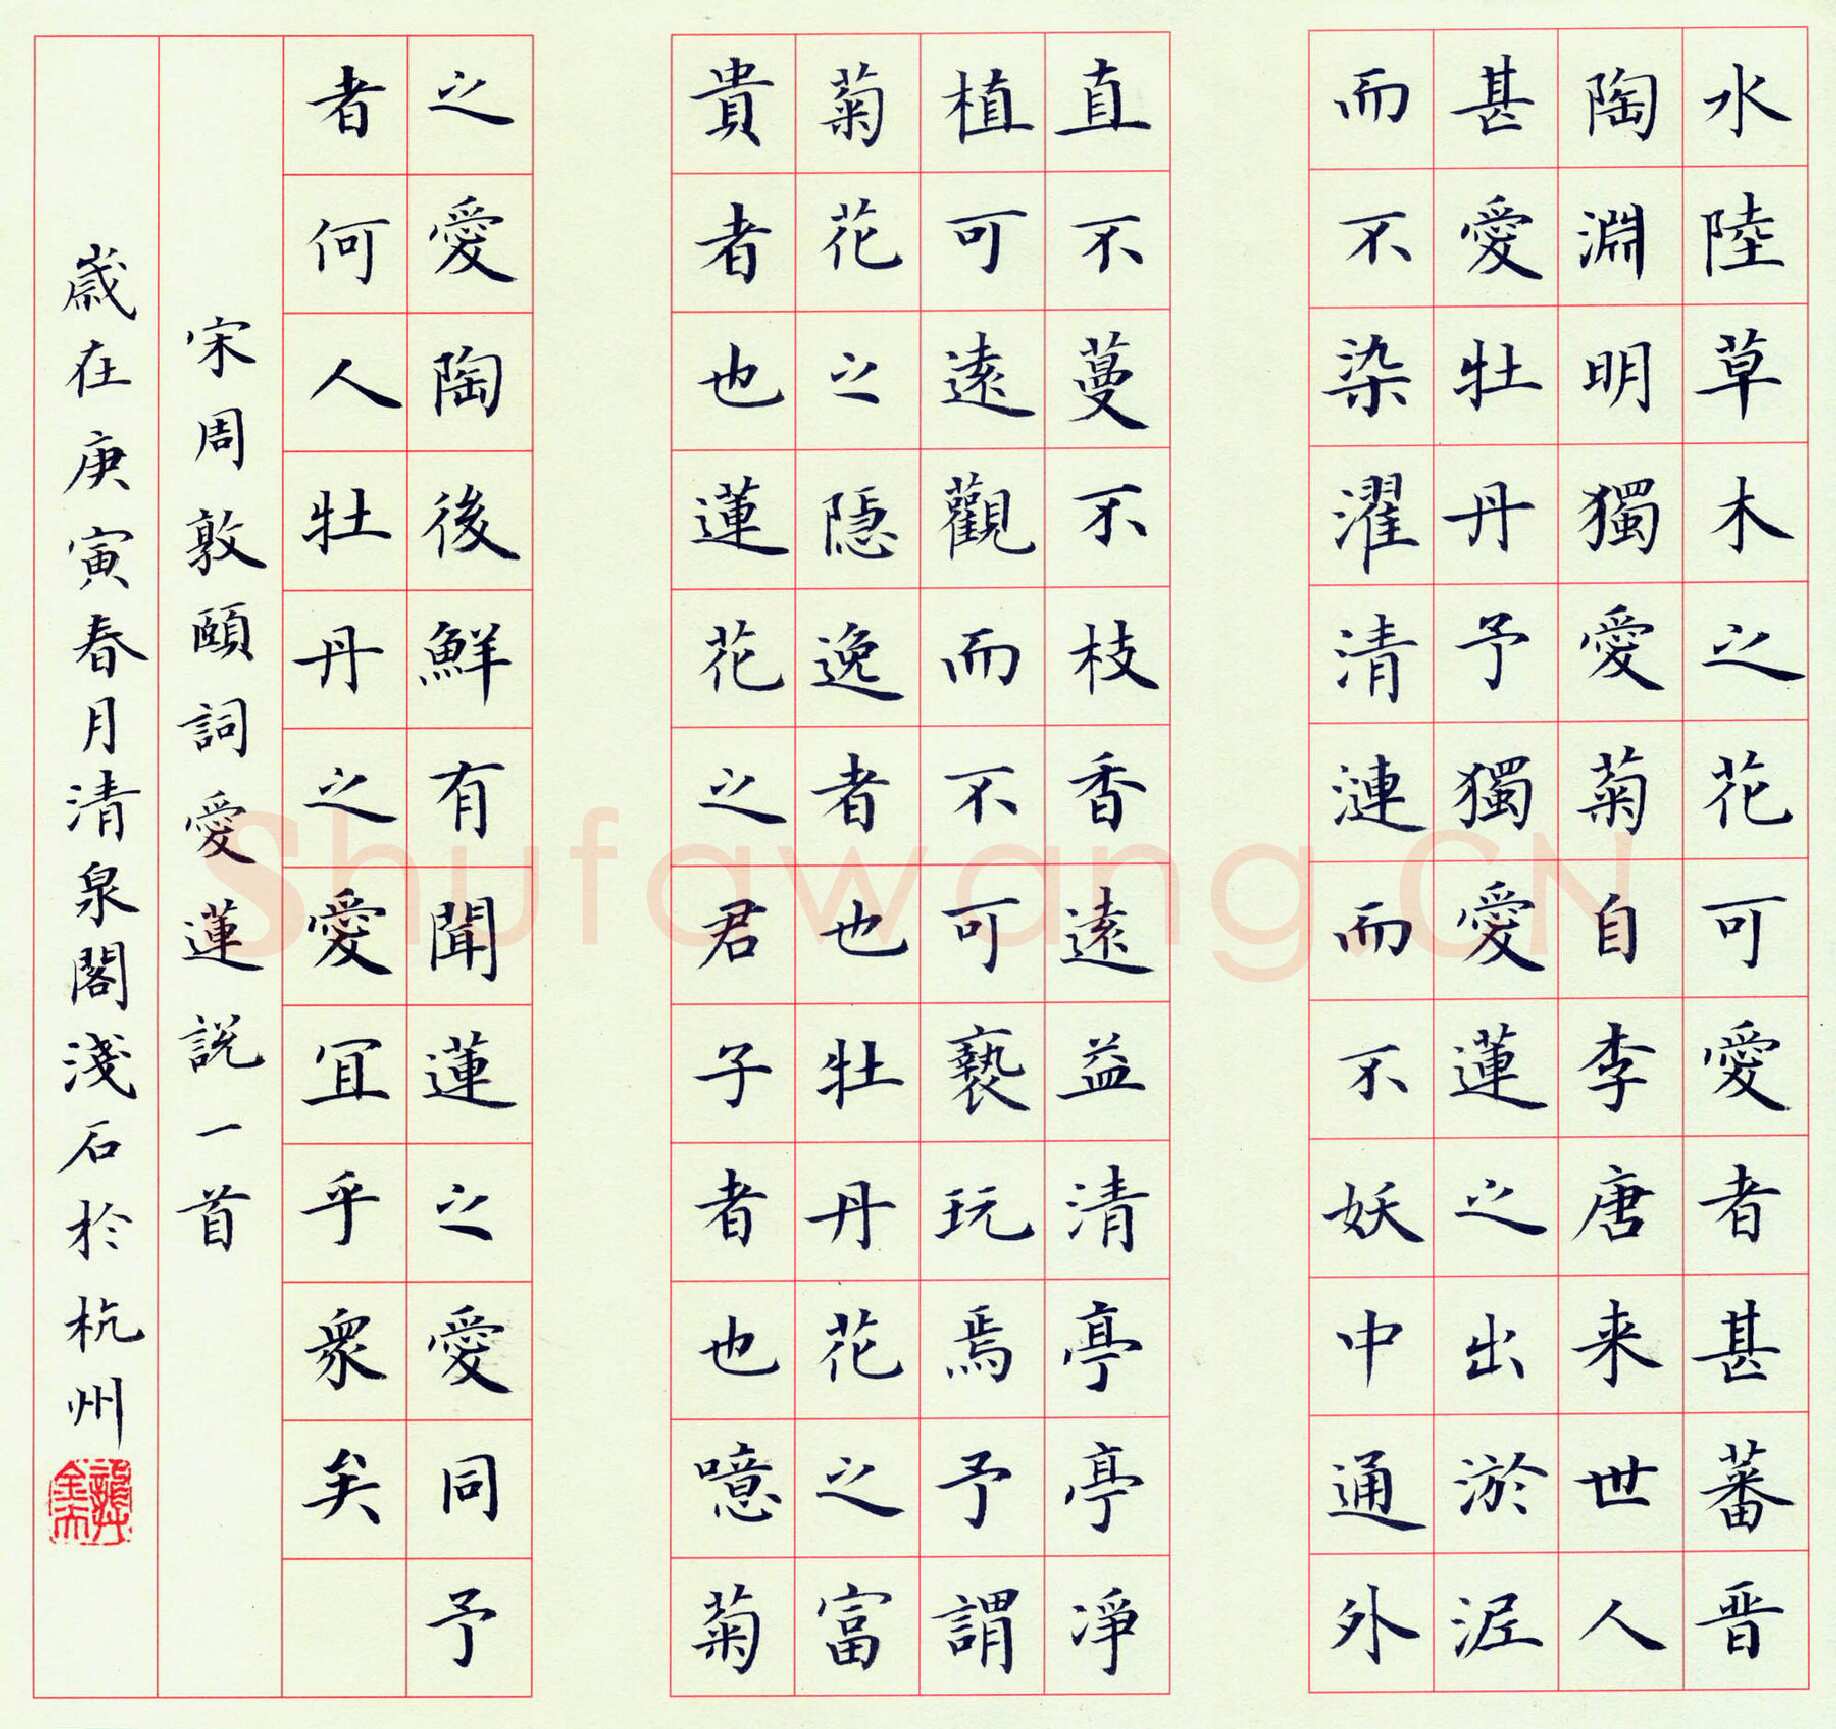 水陸草木之花可愛者甚蕃晋
陶淵明獨愛菊自李唐来世人
甚愛牡丹予獨愛蓮之出淤泥
而不染濯清漣而不妖中通外
直不蔓不枝香遠益清亭亭淨
植可遠觀而不可褻玩焉予謂
菊花之隱逸者也牡丹花之富
貴者也蓮花之君子者也噫菊
之愛陶後鮮有聞蓮之愛同予
者何人牡丹之愛宜乎衆矣
宋周敦頤詞愛蓮說一首
歲在庚寅春月清泉閣淺石於杭州
Shufawang.CN